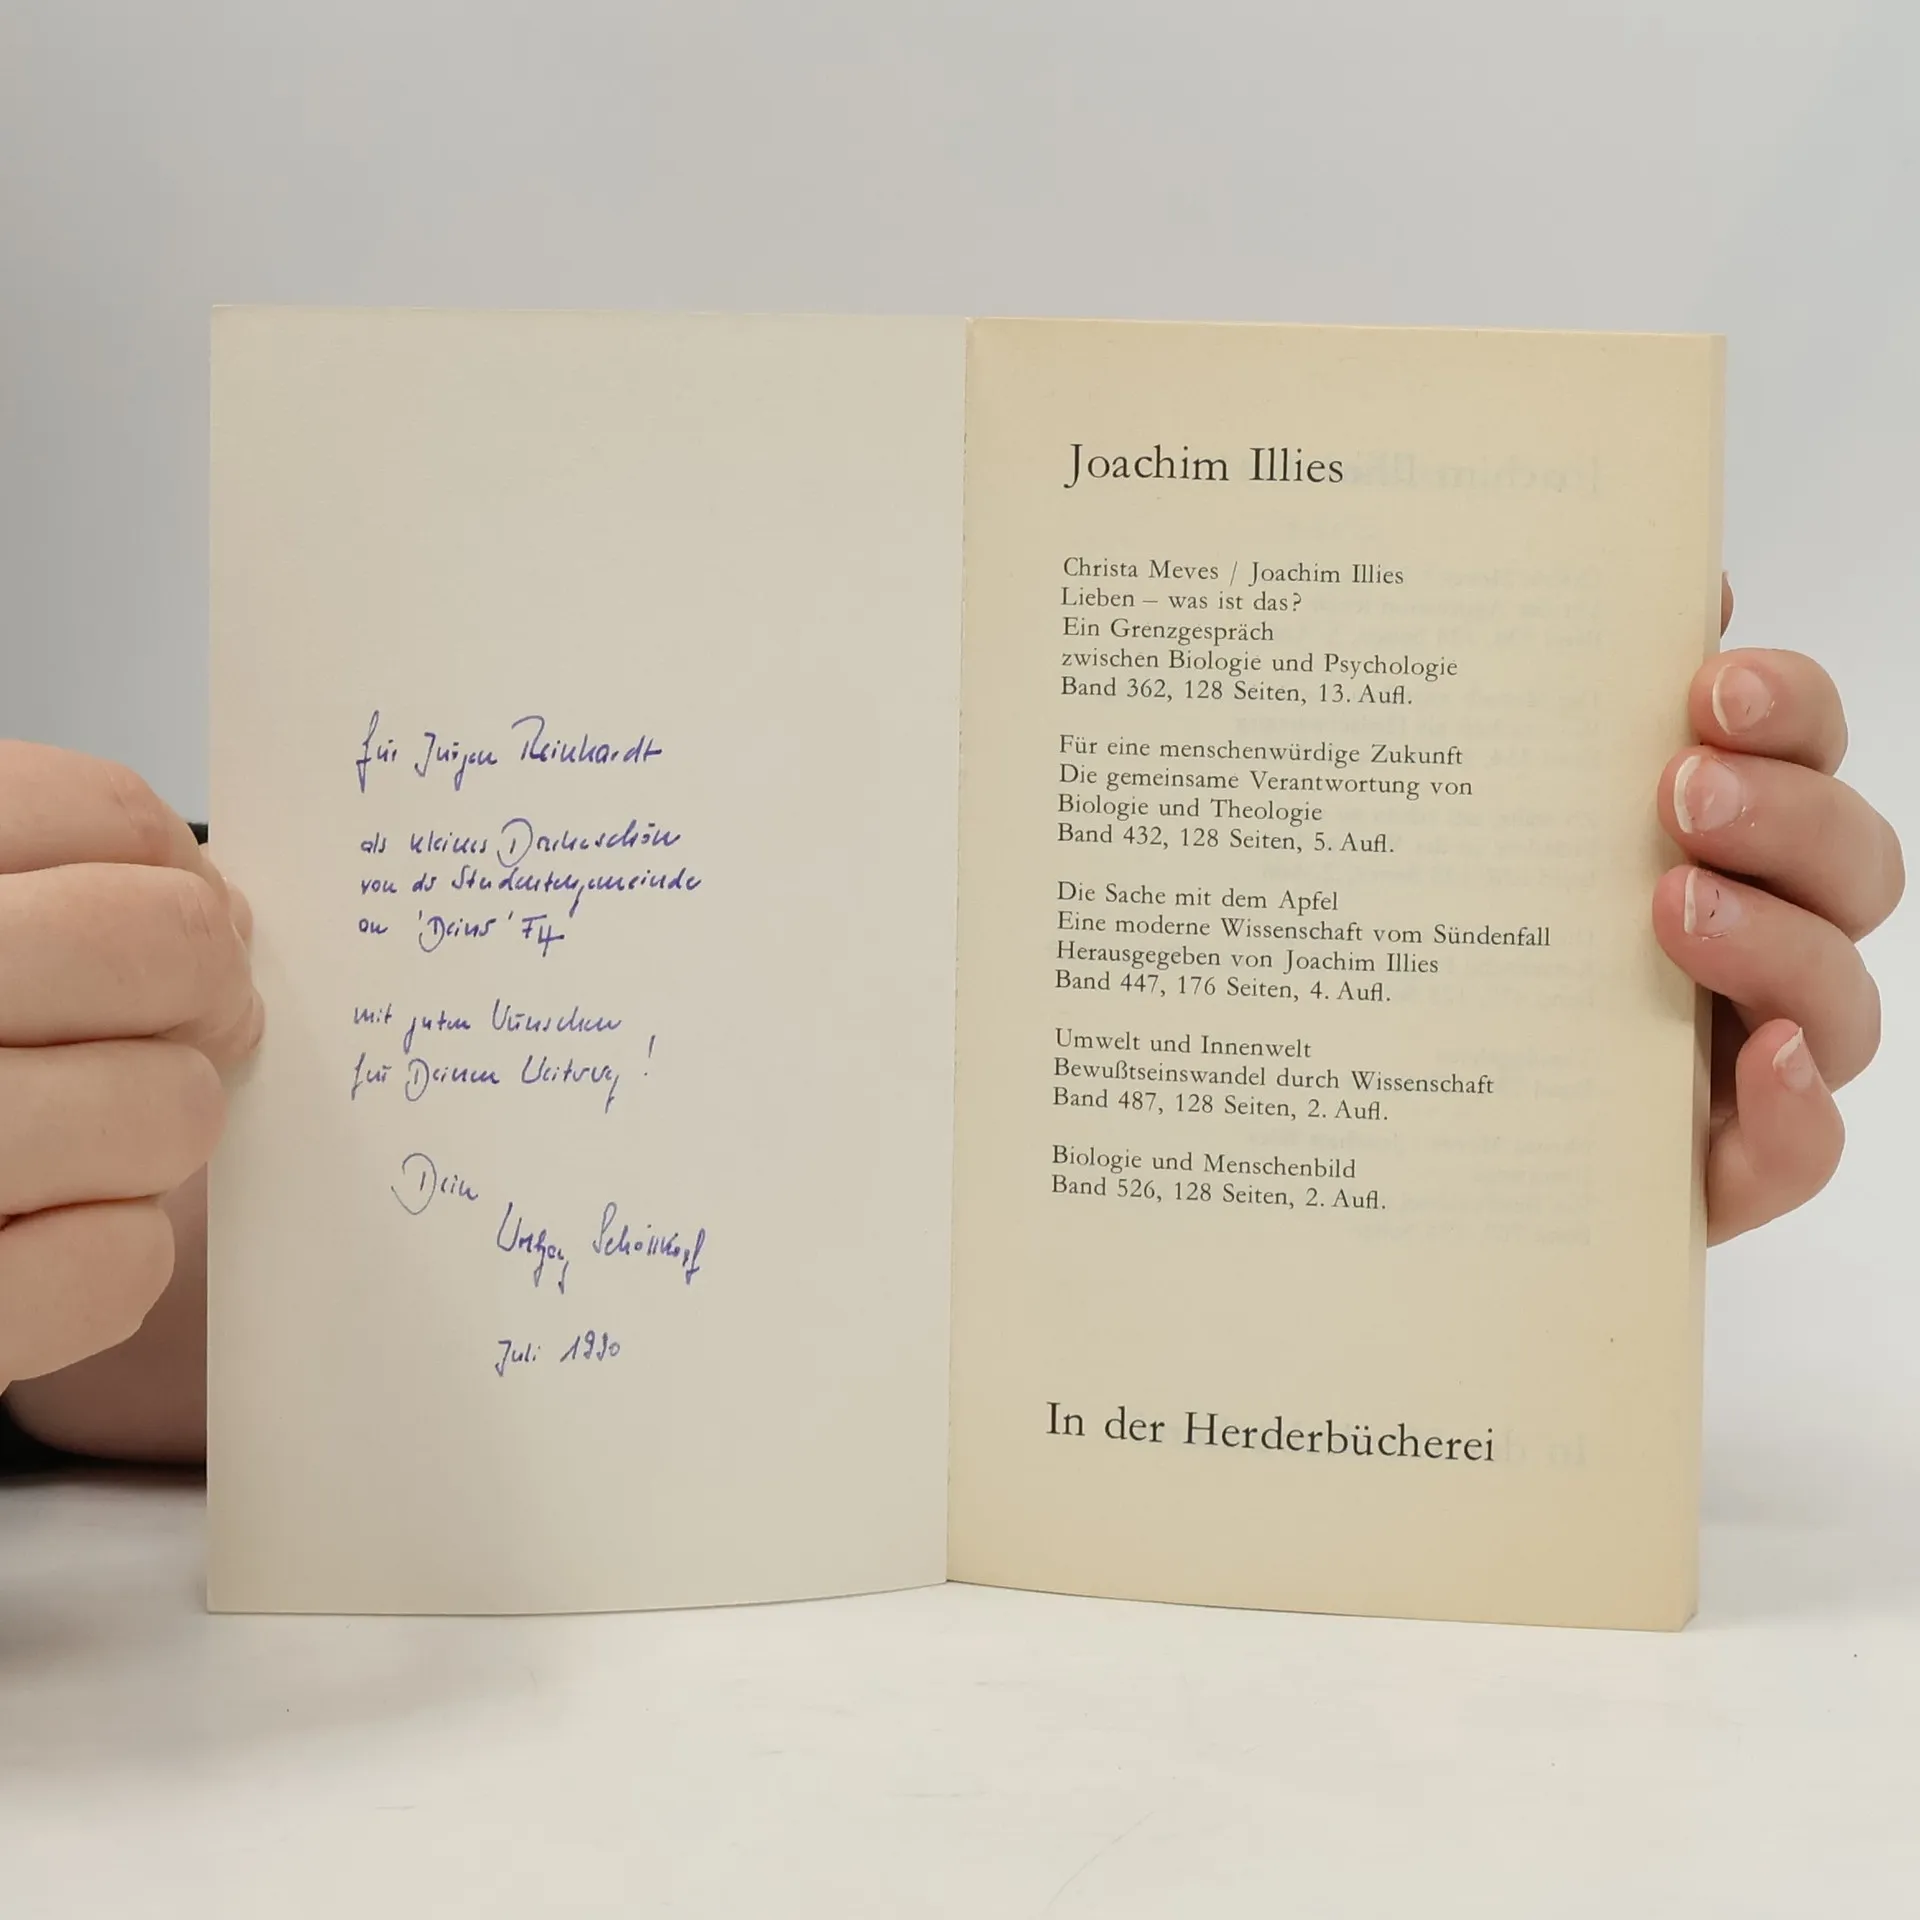 für Jürgen Reinhardt
als kleines Dankeschön
von der Studentengemeinde
an 'Deiner' FH
mit guten Wünschen
für Deinen Weitweg!
Dein
Wolfgang Schöllkopf
Juli 1990
Joachim Illies
Christa Meves / Joachim Illies
Lieben – was ist das?
Ein Grenzgespräch
zwischen Biologie und Psychologie
Band 362, 128 Seiten, 13. Aufl.
Für eine menschenwürdige Zukunft
Die gemeinsame Verantwortung von
Biologie und Theologie
Band 432, 128 Seiten, 5. Aufl.
Die Sache mit dem Apfel
Eine moderne Wissenschaft vom Sündenfall
Herausgegeben von Joachim Illies
Band 447, 176 Seiten, 4. Aufl.
Umwelt und Innenwelt
Bewußtseinswandel durch Wissenschaft
Band 487, 128 Seiten, 2. Aufl.
Biologie und Menschenbild
Band 526, 128 Seiten, 2. Aufl.
In der Herderbücherei